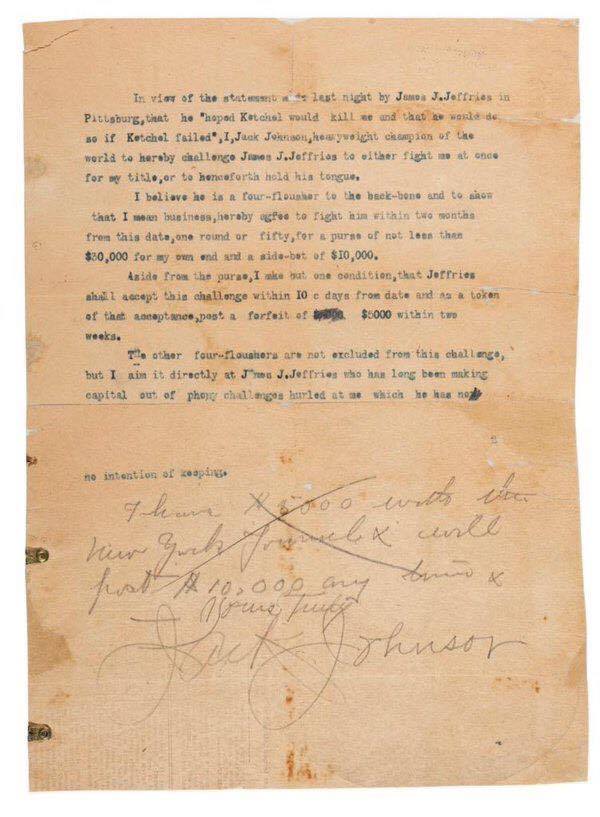 In view of the statement made last night by James J.Jeffries in
Pittsburg,that he "hoped Ketchel would kill me and that he would do
so if Ketchel failed",I,Jack Johnson,heavyweight champion of the
world to hereby challenge James J.Jeffries to either fight me at once
for my title,or to henceforth hold his tongue.
I believe he is a four-flousher to the back-bone and to show
that I mean business,hereby agfee to fight him within two months
from this date,one round or fifty,for a purse of not less than
$30,000 for my own end and a side-bet of $10,000.
Aside from the purse,I make but one condition,that Jeffries
shall accept this challenge within 10 c days from date and as a token
of that acceptance,post a forfeit of $5000 within two
weeks.
The other four-floushers are not excluded from this challenge,
but I aim it directly at James J.Jeffries who has long been making
capital out of phony challenges hurled at me which he has
2
no intention of keeping.
I have $5000 with the
New York Journal & will
post $10,000 any time &
Yours Truly
Jack Johnson